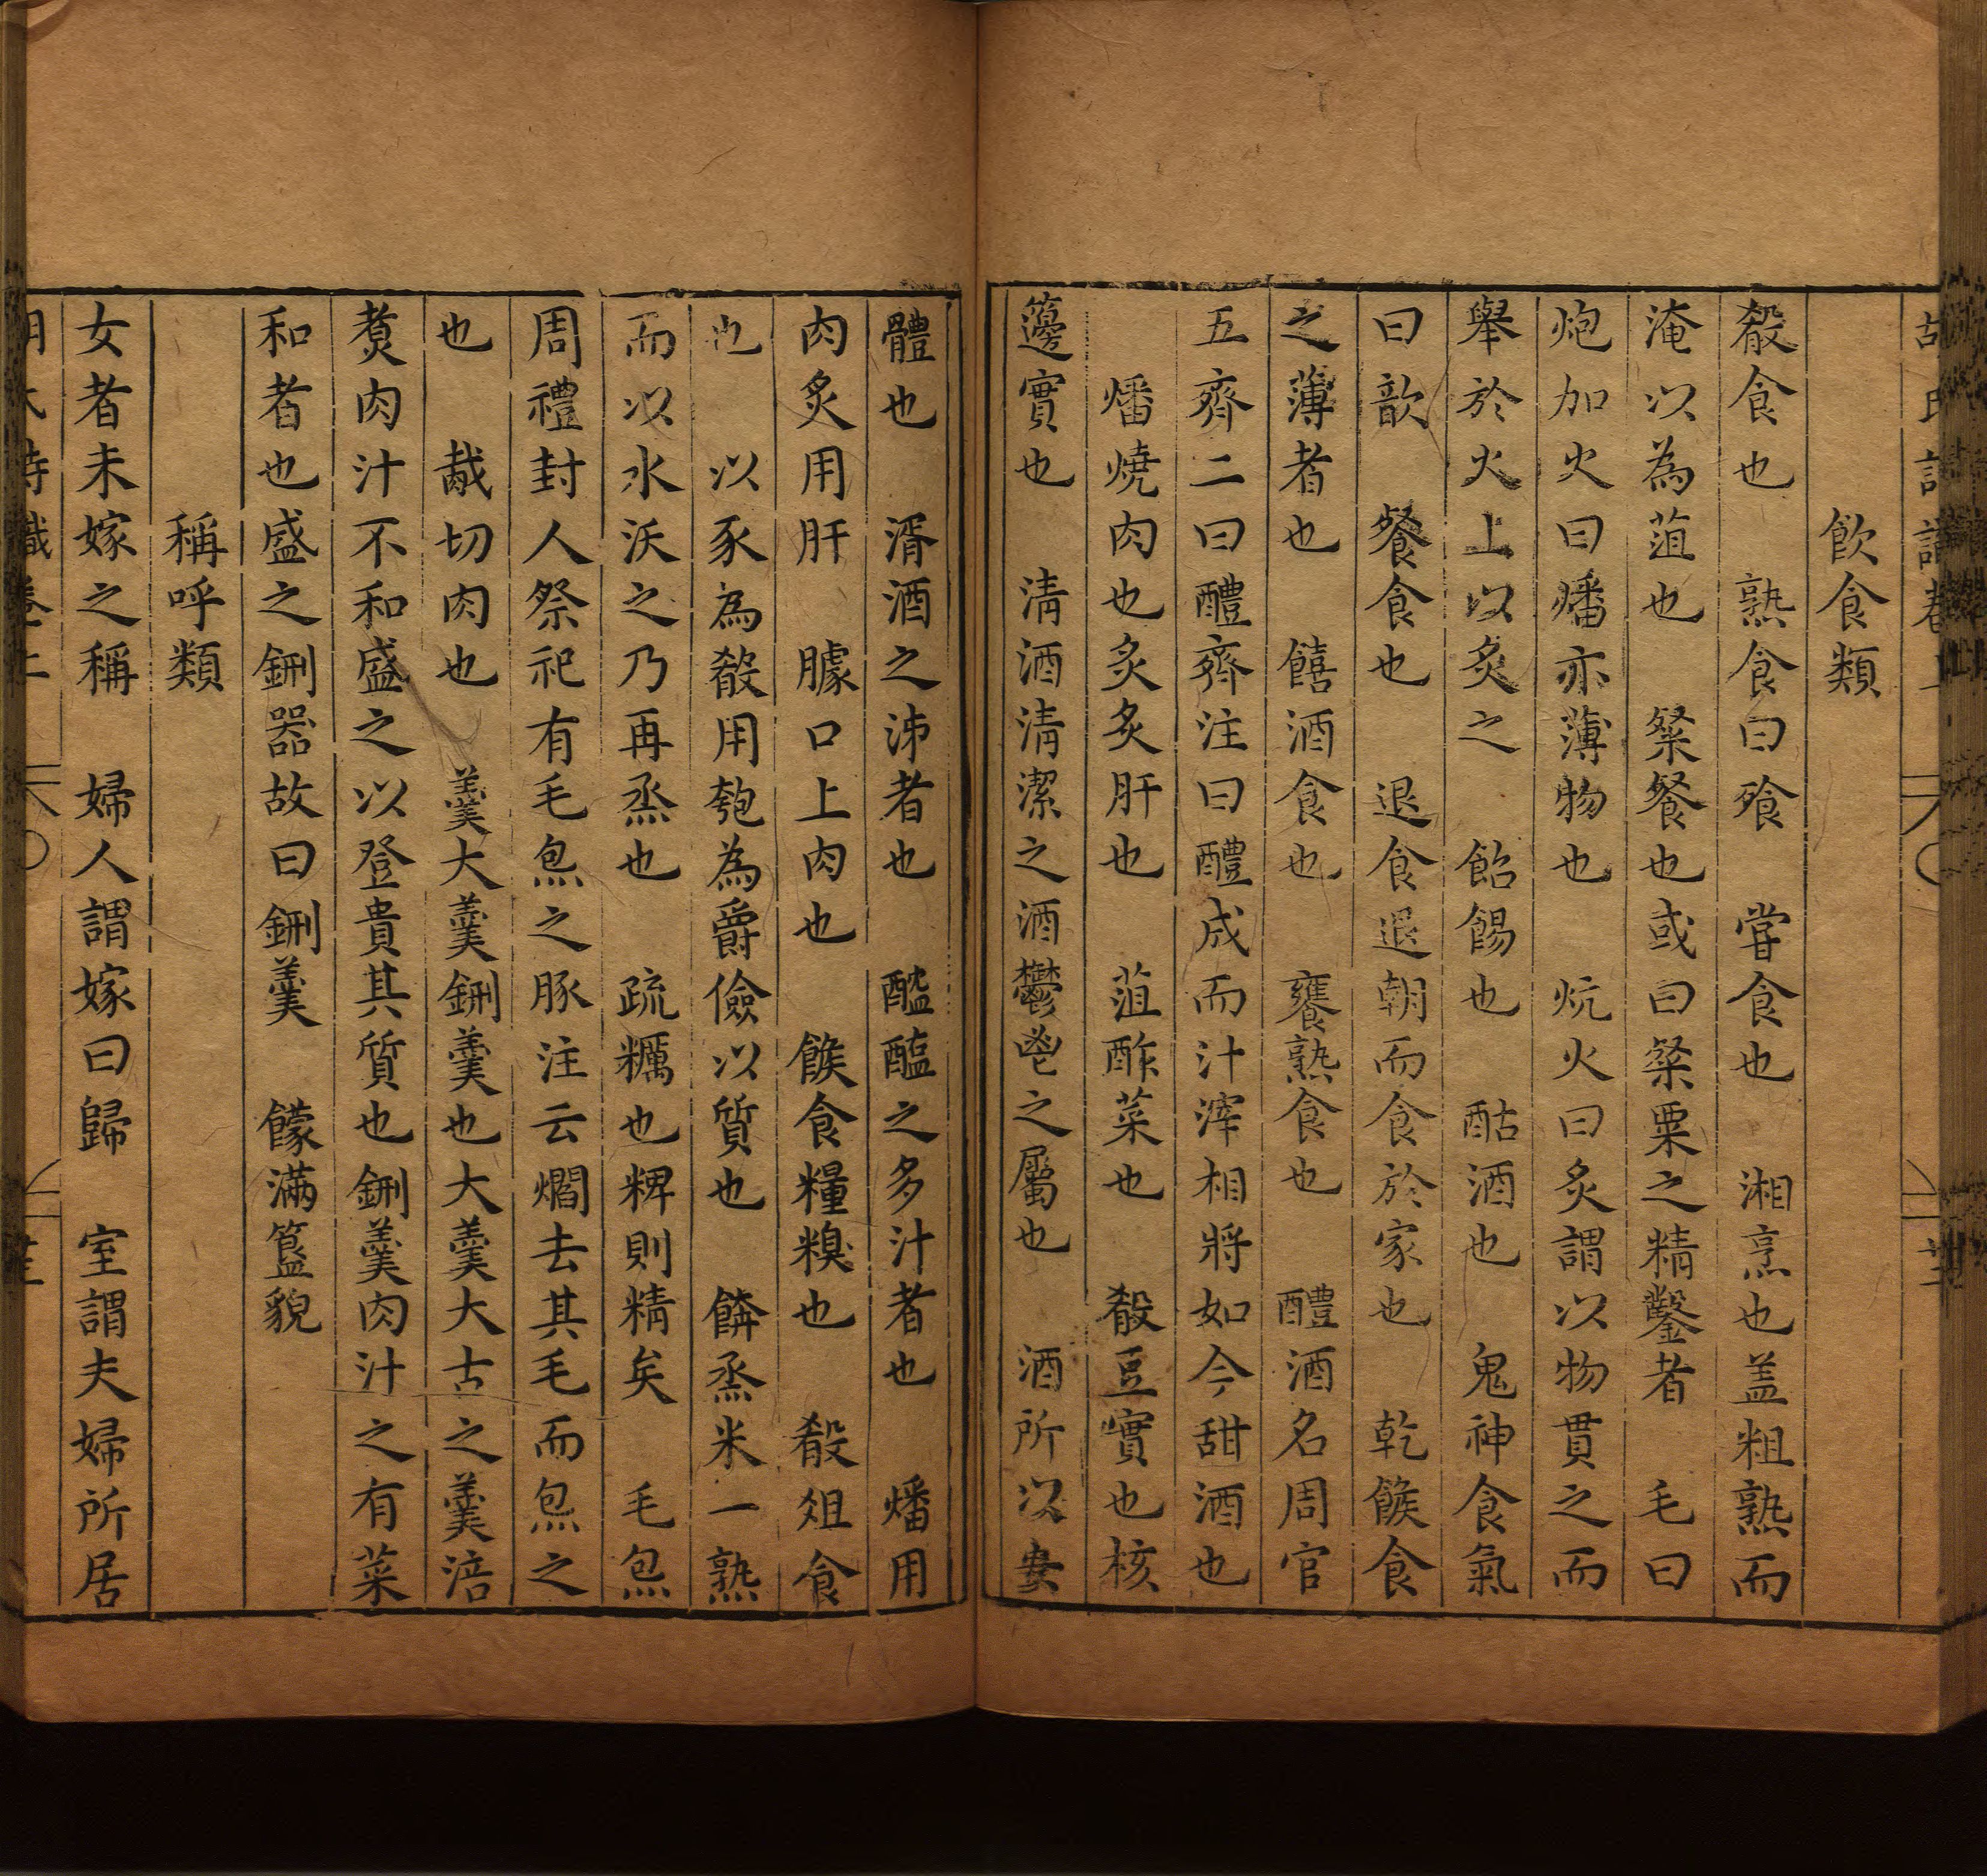 飲食類
殽食也　熟食曰飱　嘗食也　湘烹也盖粗熟而
淹以為菹也　粲餐也或曰粲粟之精鑿者　毛曰
炮加火曰燔亦薄物也　炕火曰炙謂以物貫之而
舉於火上以炙之　飴餳也　酤酒也　鬼神食氣
曰歆　餐食也　退食退朝而食於家也　乾餱食
之薄者也　饎酒食也　饔熟食也　醴酒名周官
五齊二曰醴齊注曰醴成而汁滓相將如今甜酒也
燔燒肉也炙炙肝也　菹酢菜也　殽豆實也核
籩實也　清酒清潔之酒鬱鬯之屬也　酒所以安
體也　湑酒之泲者也　醓醢之多汁者也　燔用
肉炙用肝　臄口上肉也　餱食糧糗也　殽俎食
也　以豕為殽用匏為爵儉以質也　餴烝米一熟
而以水沃之乃再烝也　疏糲也粺則精矣　毛炰
周禮封人祭祀有毛炰之豚注云爓去其毛而炰之
也　胾切肉也　羹大羹鉶羹也大羹大古之羹湆
煑肉汁不和盛之以登貴其質也鉶羹肉汁之有菜
和者也盛之鉶器故曰鉶羹　饛滿簋貌
稱呼類
女者未嫁之稱　婦人謂嫁曰歸　室謂夫婦所居